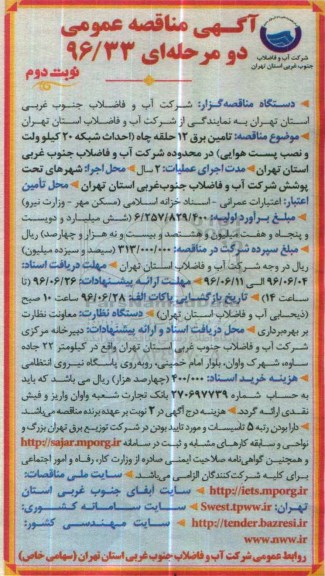 آگهی مناقصه عمومی
دو مرحله‌ای ۹۶/۳۳
نوبت دوم
شرکت آب و فاضلاب
جنوب غربی استان تهران
دستگاه مناقصه‌گزار: شرکت آب و فاضلاب جنوب غربی
استان تهران به نمایندگی از شرکت آب و فاضلاب استان تهران
موضوع مناقصه: تامین برق ۱۲ حلقه چاه (احداث شبکه ۲۰ کیلو ولت
و نصب پست هوایی) در محدوده شرکت آب و فاضلاب جنوب غربی
استان تهران مدت اجرای عملیات: ۲ سال محل اجرا: شهرهای تحت
پوشش شرکت آب و فاضلاب جنوب‌غربی استان تهران محل تأمین
اعتبار: اعتبارات عمرانی - اسناد خزانه اسلامی (مسکن مهر - وزارت نیرو)
مبلغ برآورد اولیه: ۶/۲۵۷/۸۲۹/۴۰۰ (شش میلیارد و دویست
و پنجاه و هفت میلیون و هشتصد و بیست و نه هزار و چهارصد) ریال
مبلغ سپرده شرکت در مناقصه: ۳۱۳/۰۰۰/۰۰۰ (سیصد و سیزده میلیون)
ریال در وجه شرکت آب و فاضلاب استان تهران مهلت دریافت اسناد:
۹۶/۰۶/۰۴ الی ۹۶/۰۶/۱۱ مهلت ارائه پیشنهادات: ۹۶/۰۶/۲۶ (تا
ساعت ۱۴) تاریخ بازگشایی پاکات الف: ۹۶/۰۶/۲۸ ساعت ۱۰ صبح
(ذیحسابی آب و فاضلاب استان تهران) دستگاه نظارت: معاونت نظارت
بر بهره‌برداری محل دریافت اسناد و ارائه پیشنهادات: دبیرخانه مرکزی
شرکت آب و فاضلاب جنوب غربی استان تهران واقع در کیلومتر ۲۲ جاده
ساوه، شهرک واوان، بلوار امام خمینی، روبه‌روی پاسگاه نیروی انتظامی
هزینه خرید اسناد: ۴۰۰/۰۰۰ (چهارصد هزار) ریال می باشد که باید
به حساب شماره ۲۷۰۶۹۷۷۳۹ بانک تجارت شعبه واوان واریز و فیش
نقدی ارائه گردد هزینه درج آگهی در ۲ نوبت بر عهده برنده مناقصه می‌باشد
دارا بودن رتبه ۵ تاسیسات و مورد تایید بودن در شرکت توزیع برق تهران بزرگ و
نواحی و سابقه کارهای مشابه و ثبت در سامانه http://sajar.mporg.ir
و همچنین گواهی‌نامه صلاحیت ایمنی صادره از وزارت کار، رفاه و امور اجتماعی
برای کلیه شرکت‌کنندگان الزامی می‌باشد سایت ملی مناقصات:
http://iets.mporg.ir سایت آبفای جنوب غربی استان
تهران: Swest.tpww.ir سایت سامانه کشوری:
http://tender.bazresi.ir سایت مهندسی کشور:
www.nww.ir
روابط عمومی شرکت آب و فاضلاب جنوب غربی استان تهران (سهامی خاص)